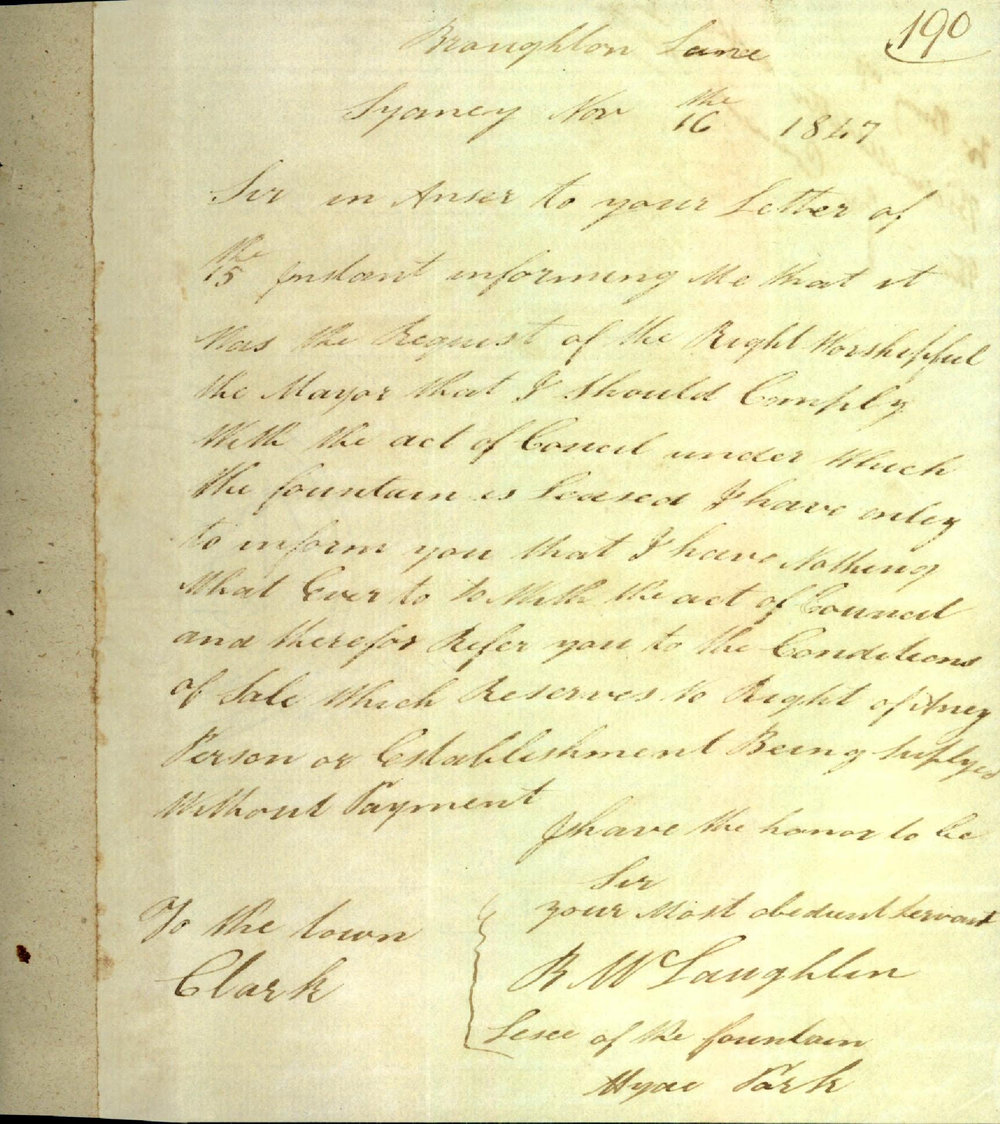 190
Broughton Lane
Sydney Nov 16the 1847
Sir in Anser to your Letter of
15the Instant informing Me that it
Was the Request of the Right Worshipful
the Mayor that I Should Comply
With the act of Councel under Which
the fountain is Leased I have onley
to inform you that I have Nothing
What Ever to to With the act of Council
and therefor Refer you to the Conditions
of Sale Which Reserves to Right of Aney
Person or Establishment Being Suplyed
Without Payment
I have the honor to be
Sir
your Most obedient Servant
R McLaughlin
Lesee of the fountain
Hyde Park
To the town
Clark